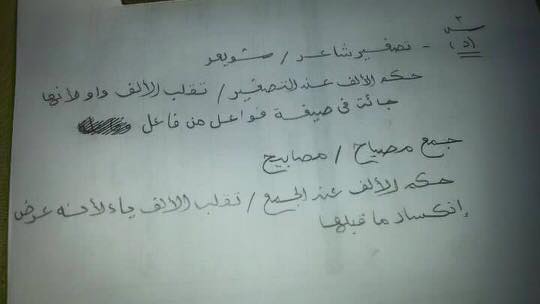 س٢
(د) - تصغير شاعر / شويعر
حكم الألف عند التصغير / تقلب الألف واو لأنها
جائت في صيغة فواعل من فاعل
جمع مصباح / مصابيح
حكم الألف عند الجمع / تقلب الألف ياء لأنه عرض
إنكسار ما قبلها